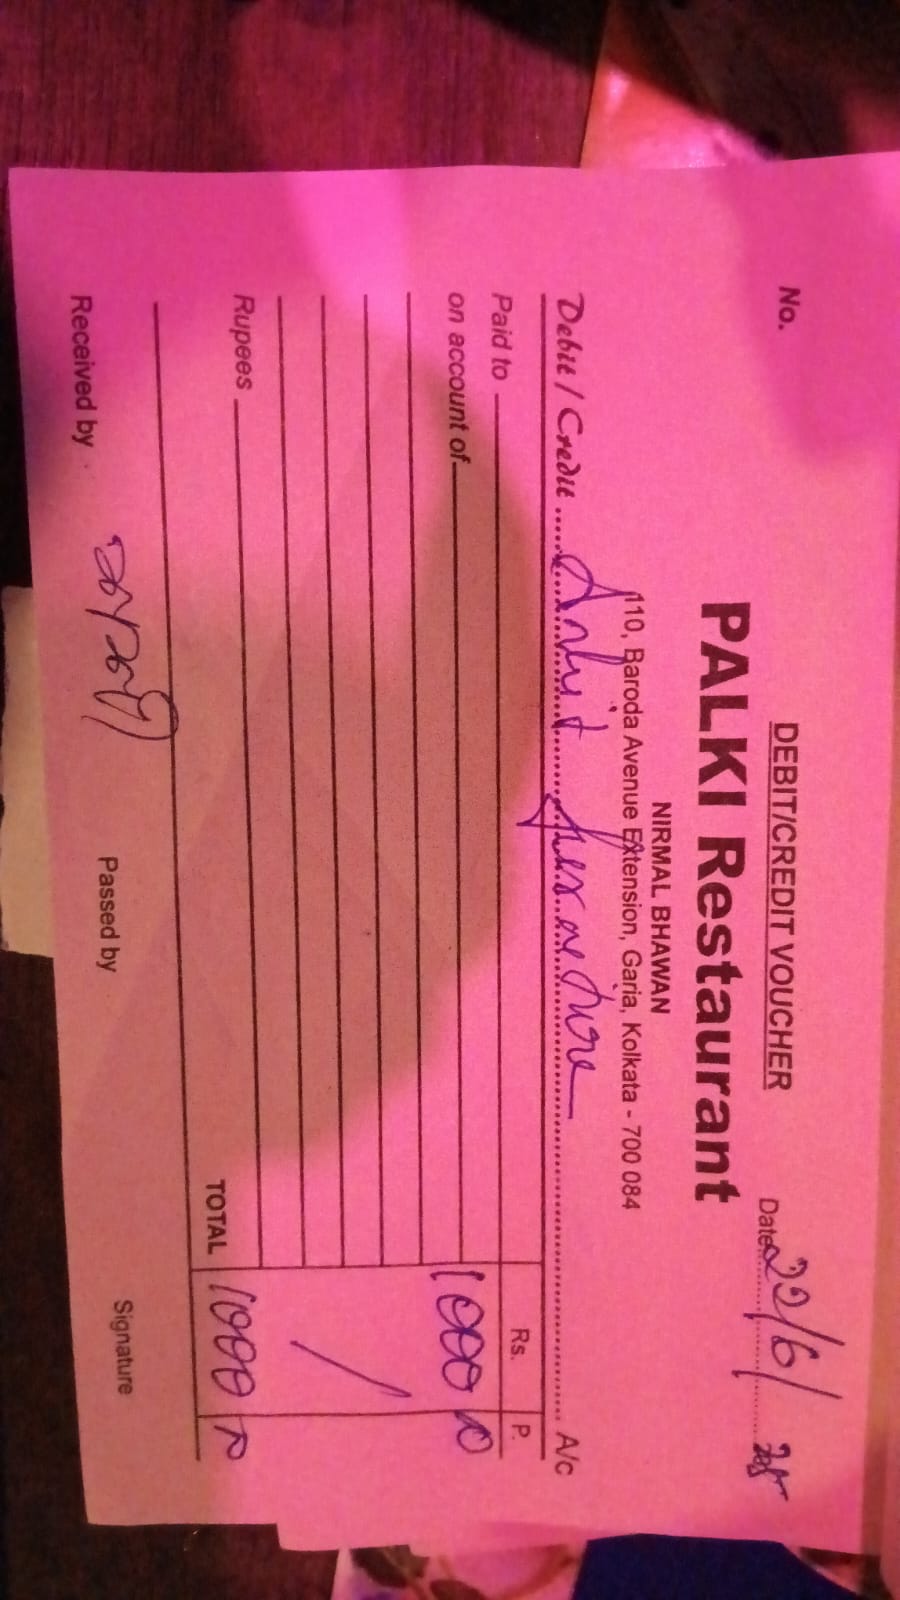 DEBIT/CREDIT VOUCHER
No.
Date 22/6/25
PALKI Restaurant
NIRMAL BHAWAN
110, Baroda Avenue Extension, Garia, Kolkata - 700 084
Debit / Credit A/c
Rs. P.
Paid to
on account of 1000
Rupees
TOTAL 1000
Received by
Passed by
Signature